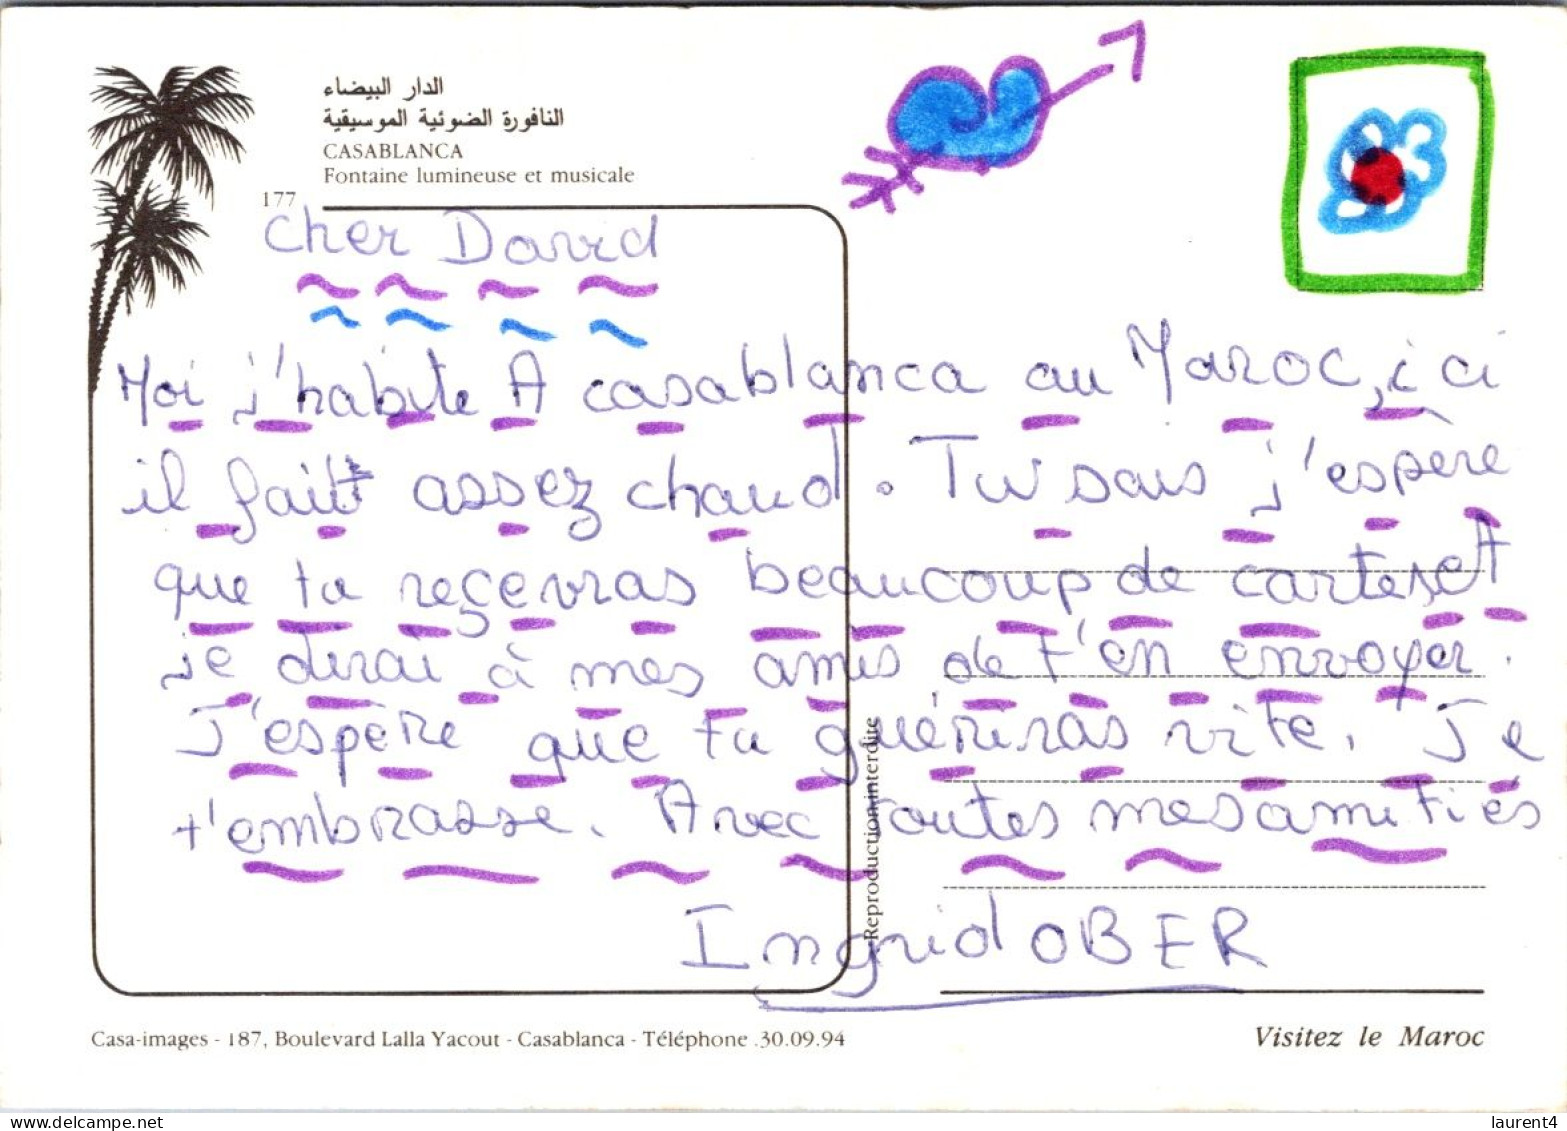 الدار البيضاء
النافورة الضوئية الموسيقية
CASABLANCA
Fontaine lumineuse et musicale
177
Cher David
Moi j'habite A casablanca au Maroc, ici
il fait assez chaud. Tu sais j'espère
que tu reçevras beaucoup de cartes et
je dirai à mes amis de t'en envoyer.
J'espère que tu guériras vite. Je
t'embrasse. Avec toutes mes amitiés
Ingrid OBER
Reproduction interdite
Casa-images - 187, Boulevard Lalla Yacout - Casablanca - Téléphone .30.09.94
Visitez le Maroc
https://www.delcampe.net
laurent4